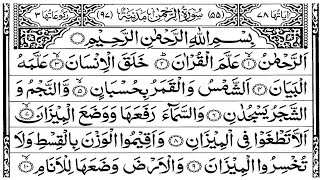 اٰیَاتُهَا ۷۸ (۵۵) سُوْرَةُ الرَّحْمٰنِ مَدَنِیَّةٌ (۹۷) رُكُوْعَاتُهَا ۳
بِسْمِ اللّٰهِ الرَّحْمٰنِ الرَّحِیْمِ
اَلرَّحْمٰنُ ۙ۱ عَلَّمَ الْقُرْاٰنَ ؕ۲ خَلَقَ الْاِنْسَانَ ۙ۳ عَلَّمَهُ
الْبَیَانَ ۴ اَلشَّمْسُ وَالْقَمَرُ بِحُسْبَانٍ ۪۵ وَّالنَّجْمُ وَ
الشَّجَرُ یَسْجُدٰنِ ۶ وَالسَّمَآءَ رَفَعَهَا وَوَضَعَ الْمِیْزَانَ ۙ۷
اَلَّا تَطْغَوْا فِی الْمِیْزَانِ ۸ وَاَقِیْمُوا الْوَزْنَ بِالْقِسْطِ وَلَا
تُخْسِرُوا الْمِیْزَانَ ۹ وَالْاَرْضَ وَضَعَهَا لِلْاَنَامِ ۙ۱۰